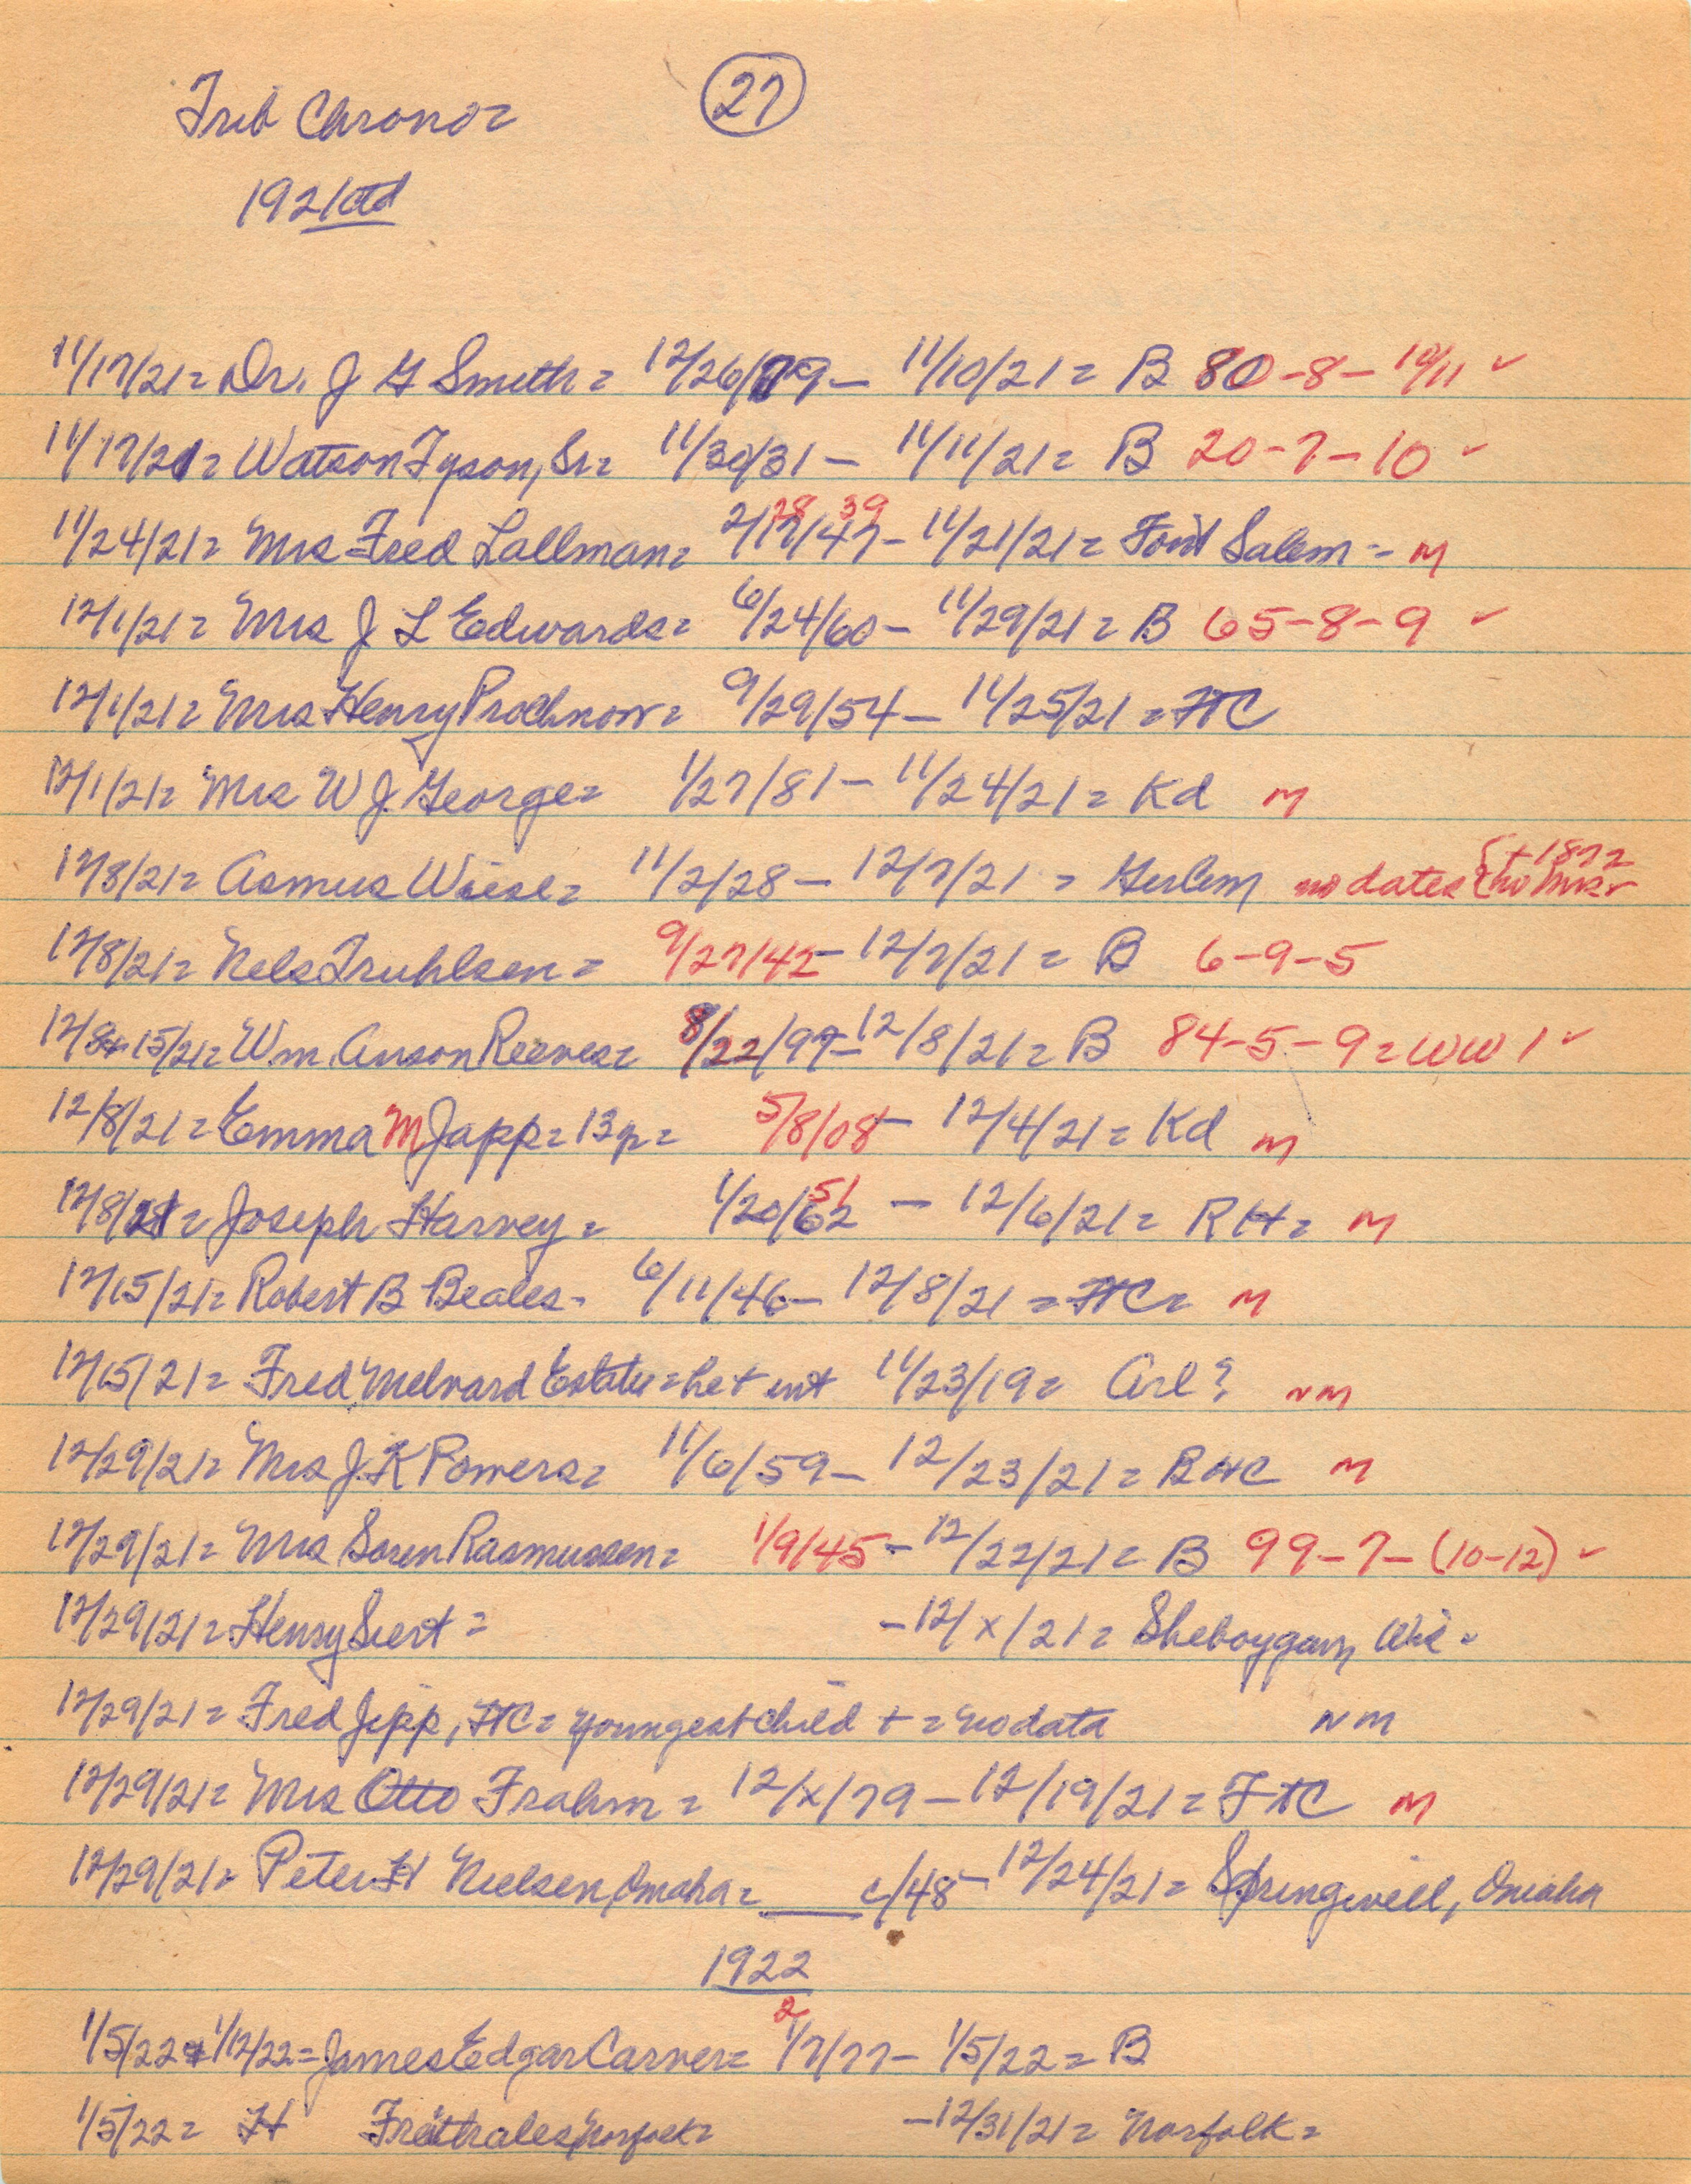 Trib Chrono=
27
1921ctd
11/17/21= Dr. J G Smith= 12/26/79 - 11/10/21= B 80-8-10/11 ✓
11/17/21= Watson Tyson, Sr= 11/30/31 - 11/11/21= B 20-7-10 ✓
28 39
11/24/21= Mrs Fred Lallman= 2/17/47- 11/21/21= Font Salem - M
12/1/21= Mrs J L Edwards= 6/24/60 - 11/29/21= B 65-8-9 ✓
12/1/21= Mrs Henry Prochnow= 9/29/54 - 11/25/21= FTC
12/1/21= Mrs W J. George= 1/27/81 - 11/24/21= Kd M
12/8/21= Asmus Wiese= 11/2/28 - 12/7/21 = no dates + 1872
12/8/21= Nels Truhlsen= 9/27/42 - 12/7/21= B 6-9-5
12/8+15/21= Wm. Anson Reeves= 8/22/97 - 12/8/21= B 84-5-9=WW1 ✓
12/8/21= Emma M Japp=13y= 5/8/08 - 12/4/21= Kd M
51
12/8/21= Joseph Harvey= 1/20/62 - 12/6/21= RH= M
12/15/21= Robert B Beales- 6/11/46- 12/8/21= FTC= M
12/15/21= Fred Melvard Estate= 11/23/19= Arl? NM
12/29/21= Mrs J. K Powers= 11/6/59 - 12/23/21= BHC M
12/29/21= Mrs Soren Rasmussen= 1/9/45 - 12/22/21= B 99-7-(10-12) ✓
12/29/21= Henry Siert= -12/x/21= Sheboygan, Wis -
12/29/21= Fred Jipp, FTC= youngest child + = no data NM
12/29/21= Mrs Otto Frahm= 12/x/79 - 12/19/21= FTC M
12/29/21= Peter H Nielsen, Omaha= ____ c/48 - 12/24/21= Springwell, Omaha
1922
2
1/5/22+1/12/22= James Edgar Carver= 1/7/77 - 1/5/22= B
1/5/22= H Norfolk= -12/31/21= Norfolk=